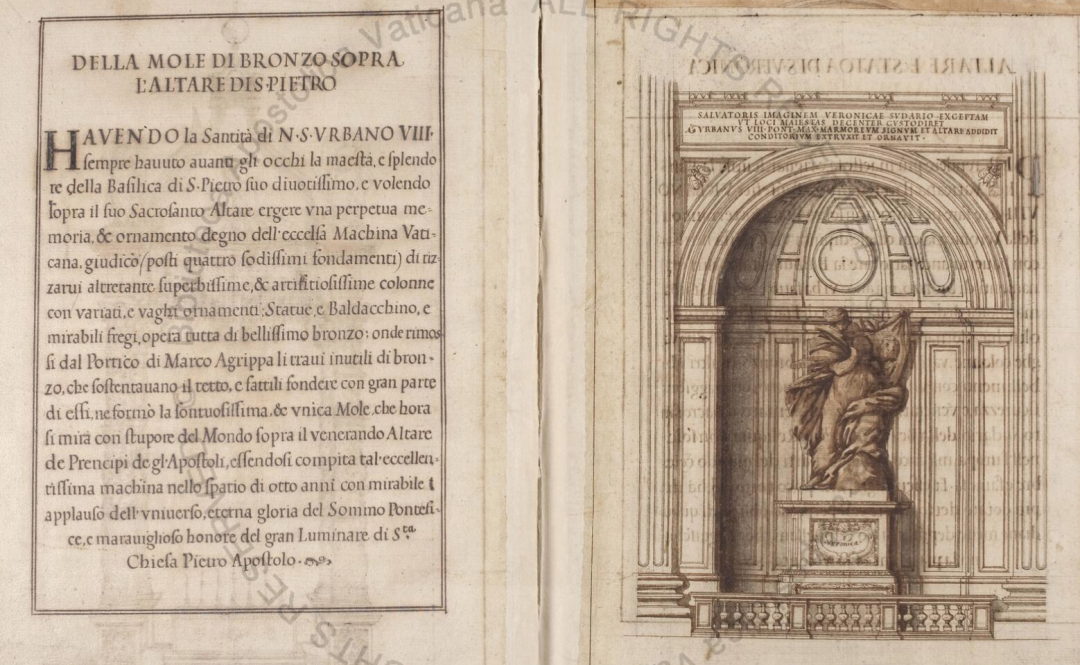 DELLA MOLE DI BRONZO SOPRA
L'ALTARE DI S·PIETRO
HAVENDO la Santità di N·S·VRBANO VIII·
sempre hauuto auanti gli occhi la maestà, e splendo
re della Basilica di S·Pietro suo diuotissimo, e volendo
sopra il suo Sacrosanto Altare ergere vna perpetua me=
moria, & ornamento degno dell'eccelsa Machina Vati=
cana, giudicò (posti quattro sodissimi fondamenti) di riz
zarui altretante superbissime, & artifitiosissime colonne
con variati, e vaghi ornamenti, Statue, e Baldacchino, e
mirabili fregi, opera tutta di bellissimo bronzo; onde rimos
si dal Portico di Marco Agrippa li traui inutili di bron=
zo, che sostentauano il tetto, e fattili fondere con gran parte
di essi, ne formò la sontuosissima, & vnica Mole, che hora
si mira con stupore del Mondo sopra il venerando Altare
de Prencipi de gl'Apostoli, essendosi compita tal'eccellen=
tissima machina nello spatio di otto anni con mirabile
applauso dell'vniuerso, eterna gloria del Sommo Pontefi=
ce, e marauiglioso honore del gran Luminare di S.ta
Chiesa Pietro Apostolo·
ALTARE E STATOA DI S VERONICA
SALVATORIS IMAGINEM VERONICAE SVDARIO EXCEPTAM
VT LOCI MAIESTAS DECENTER CVSTODIRET
VRBANVS VIII·PONT·MAX·MARMOREVM SIGNVM ET ALTARE ADDIDIT
CONDITORIVM EXTRVXIT ET ORNAVIT·
Biblioteca Apostolica Vaticana ALL RIGHTS RESERVED